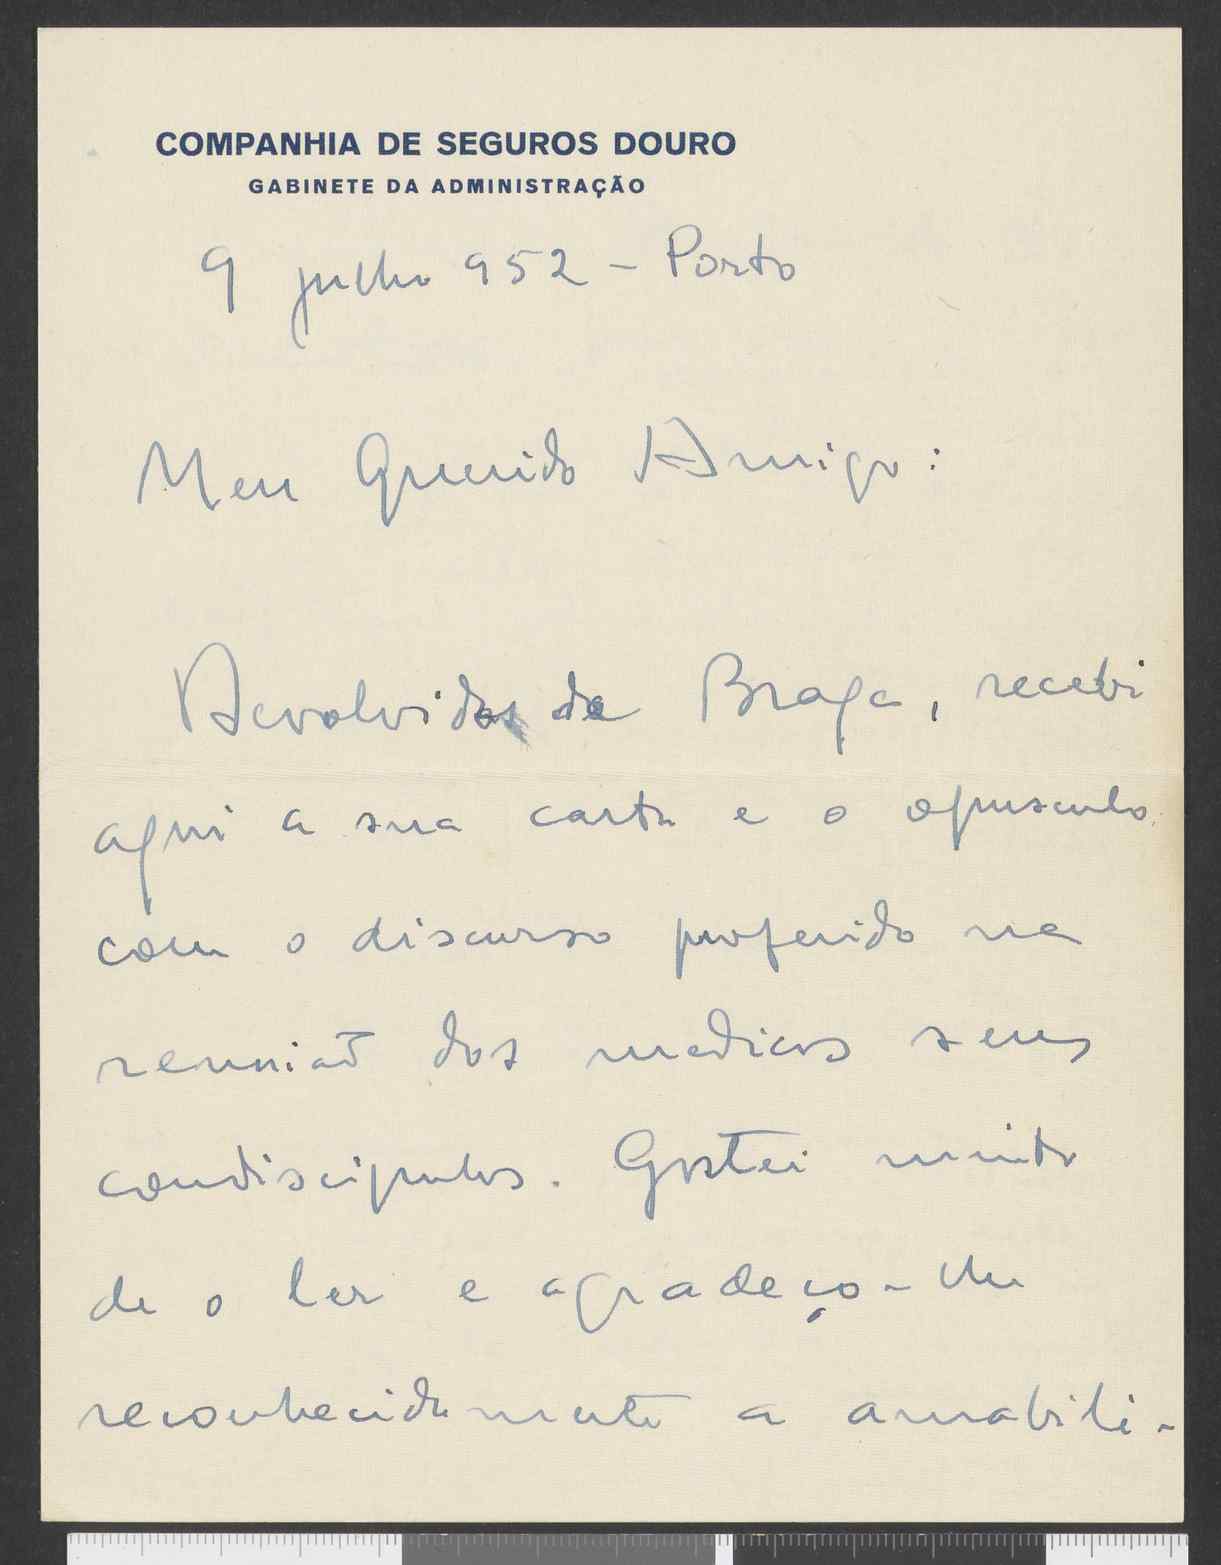 COMPANHIA DE SEGUROS DOURO
GABINETE DA ADMINISTRAÇÃO
9 julho 952 - Porto
Meu Querido Amigo:
Devolvidos de Braga, recebi
aqui a sua carta e o opusculo
com o discurso proferido na
reunião dos medicos seus
condiscipulos. Gostei muito
de o ler e agradeço-lhe
reconhecidamente a amabili-